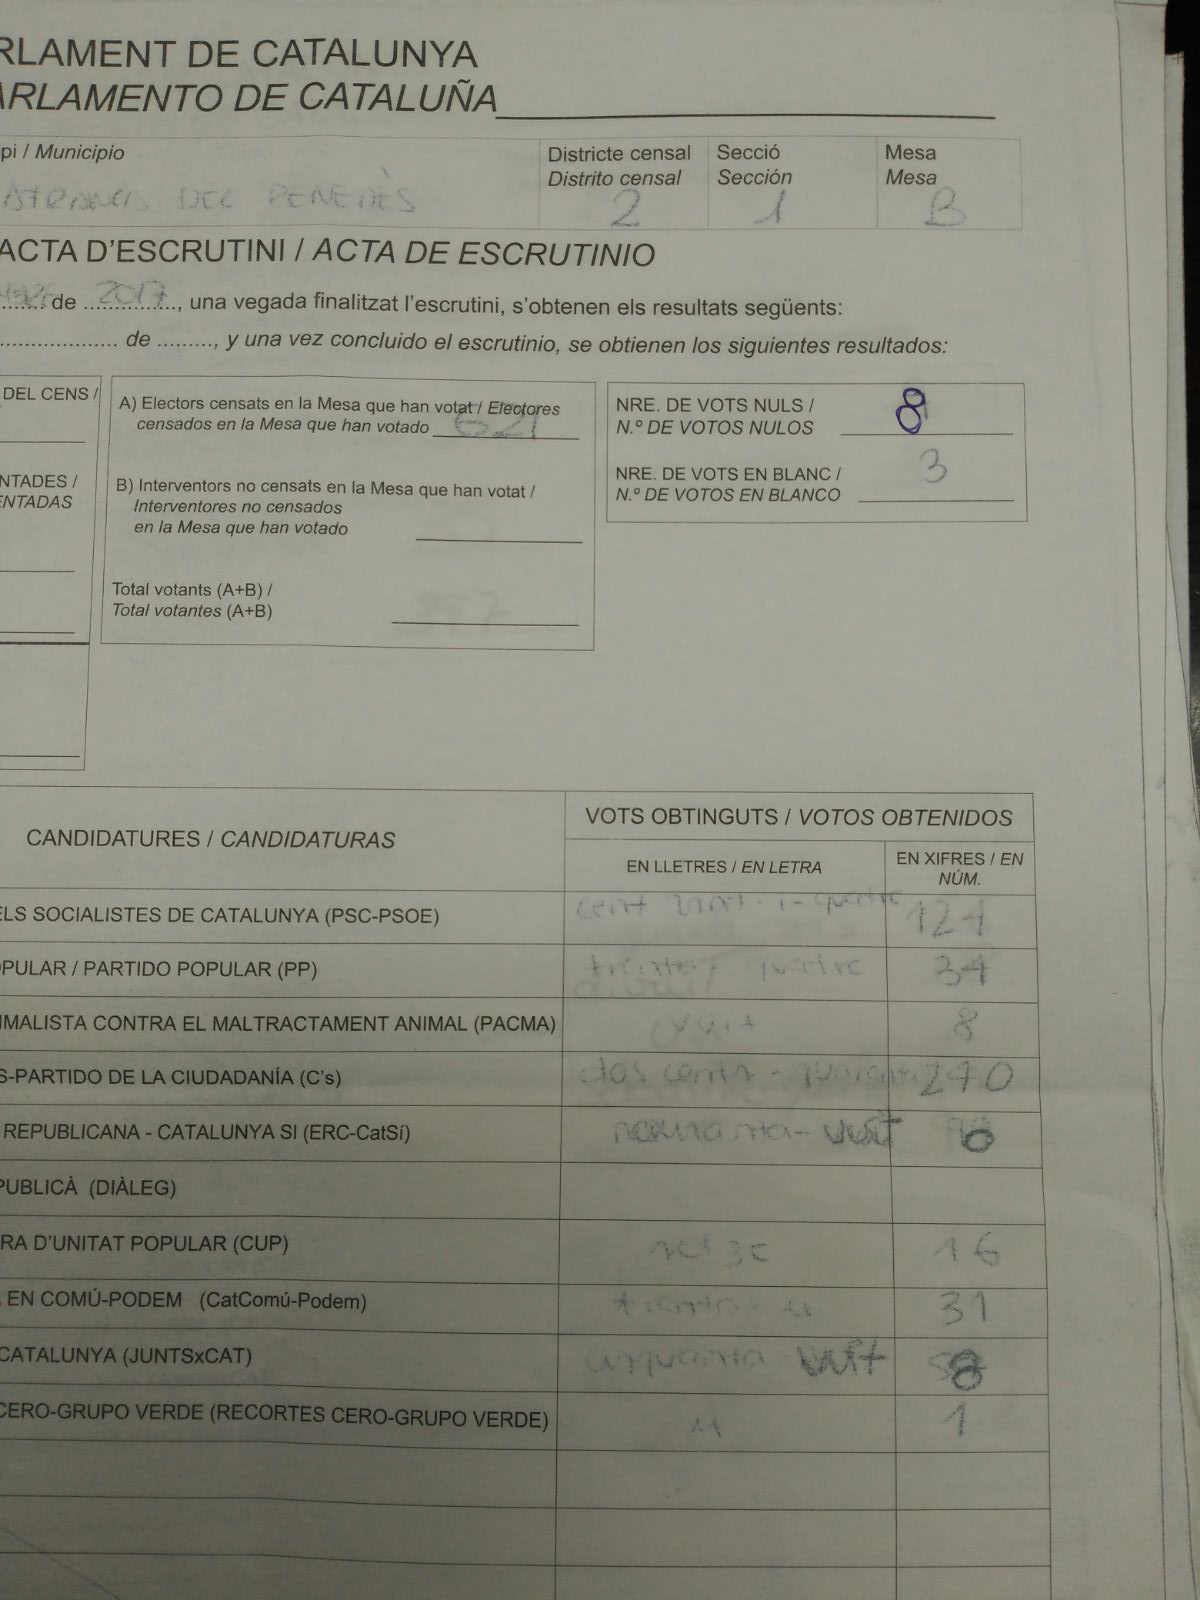 RLAMENT DE CATALUNYA
ARLAMENTO DE CATALUÑA
pi / Municipio
Districte censal
Secció
Mesa
Distrito censal
Sección
Mesa
DEL PENEDÈS
2
1
B
ACTA D'ESCRUTINI / ACTA DE ESCRUTINIO
de 2017, una vegada finalitzat l'escrutini, s'obtenen els resultats següents:
de ........., y una vez concluido el escrutinio, se obtienen los siguientes resultados:
DEL CENS /
NTADES /
ENTADAS
A) Electors censats en la Mesa que han votat / Electores
censados en la Mesa que han votado 621
B) Interventors no censats en la Mesa que han votat /
Interventores no censados
en la Mesa que han votado
Total votants (A+B) /
Total votantes (A+B)
NRE. DE VOTS NULS /
N.º DE VOTOS NULOS
8
NRE. DE VOTS EN BLANC /
N.º DE VOTOS EN BLANCO
3
CANDIDATURES / CANDIDATURAS
VOTS OBTINGUTS / VOTOS OBTENIDOS
EN LLETRES / EN LETRA
EN XIFRES / EN
NÚM.
ELS SOCIALISTES DE CATALUNYA (PSC-PSOE) cent vint-i-quatre 124
OPULAR / PARTIDO POPULAR (PP) trenta-quatre 34
IMALISTA CONTRA EL MALTRACTAMENT ANIMAL (PACMA) 8
S-PARTIDO DE LA CIUDADANÍA (C's) dos cents-quaranta 240
REPUBLICANA - CATALUNYA SI (ERC-CatSí) vuit
PUBLICÀ (DIÀLEG)
RA D'UNITAT POPULAR (CUP) setze 16
EN COMÚ-PODEM (CatComú-Podem) trenta-u 31
CATALUNYA (JUNTSxCAT) cinquanta vuit 58
CERO-GRUPO VERDE (RECORTES CERO-GRUPO VERDE) u 1